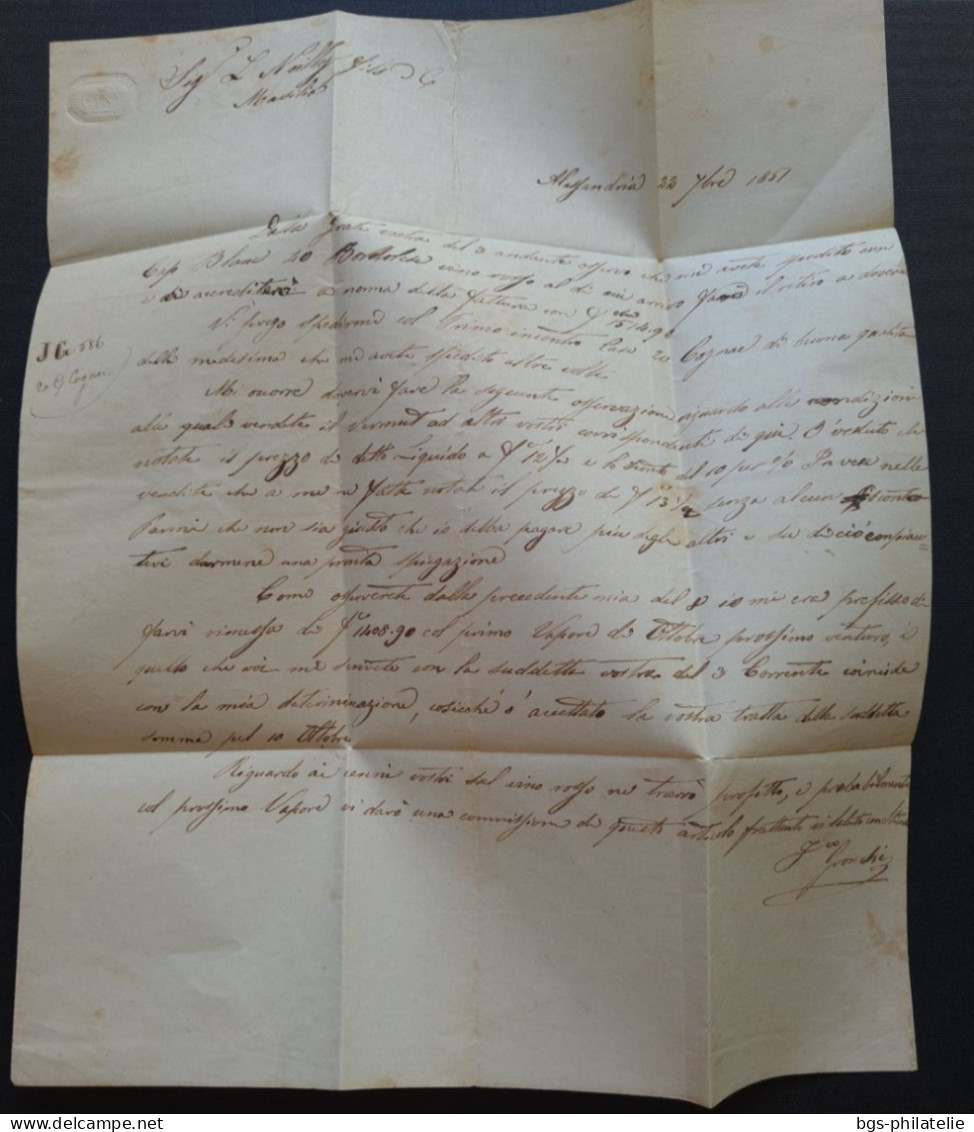 Sig.ri L Noilly f.io & C
Marsilia
Alessandria 22 7bre 1851
Dalla grata vostra del 3 andante osservo che mi avete spedito con
Cap Blanc 20 Bordolesi vino rosso al di cui arrivo farò il ritiro e dovere
e di accreditarvi a norma della fattura con f 1514.90
Vi prego spedirmi col primo incontro Casse 20 Cognac di buona qualità
della medesima che mi avete spedito altre volte
J G 586
20 C/ Cognac
Mi occorre dovervi fare la seguente osservazione riguardo alle condizioni
alle quali vendete il vermut ad altri vostri corrispondenti di qui. O' veduto che
notate il prezzo di detto Liquido a f 12 e lo sconto del 10 per % Invece nelle
vendite che a me fatte notate il prezzo di f 13 1/2 senza alcun sconto
Parmi che non sia giusto che io debba pagare più degli altri e su di ciò compiace-
tevi darmene una pronta spiegazione
Come osserverete dalla precedente mia del 8 io mi era prefisso di
farvi rimessa di f 1408.90 col primo Vapore di Ottobre prossimo venturo, e
quello che voi mi scrivete con la suddetta vostra del 3 Corrente coincide
con la mia determinazione, cosicché ò accettato la vostra tratta della suddetta
somma pel 10 Ottobre
Riguardo ai cenni vostri sul vino rosso ne trarrò profitto, e probabilmente
col prossimo Vapore vi darò una commissione di questo articolo frattanto vi saluto
F.co Gronchi
bgs-philatelie